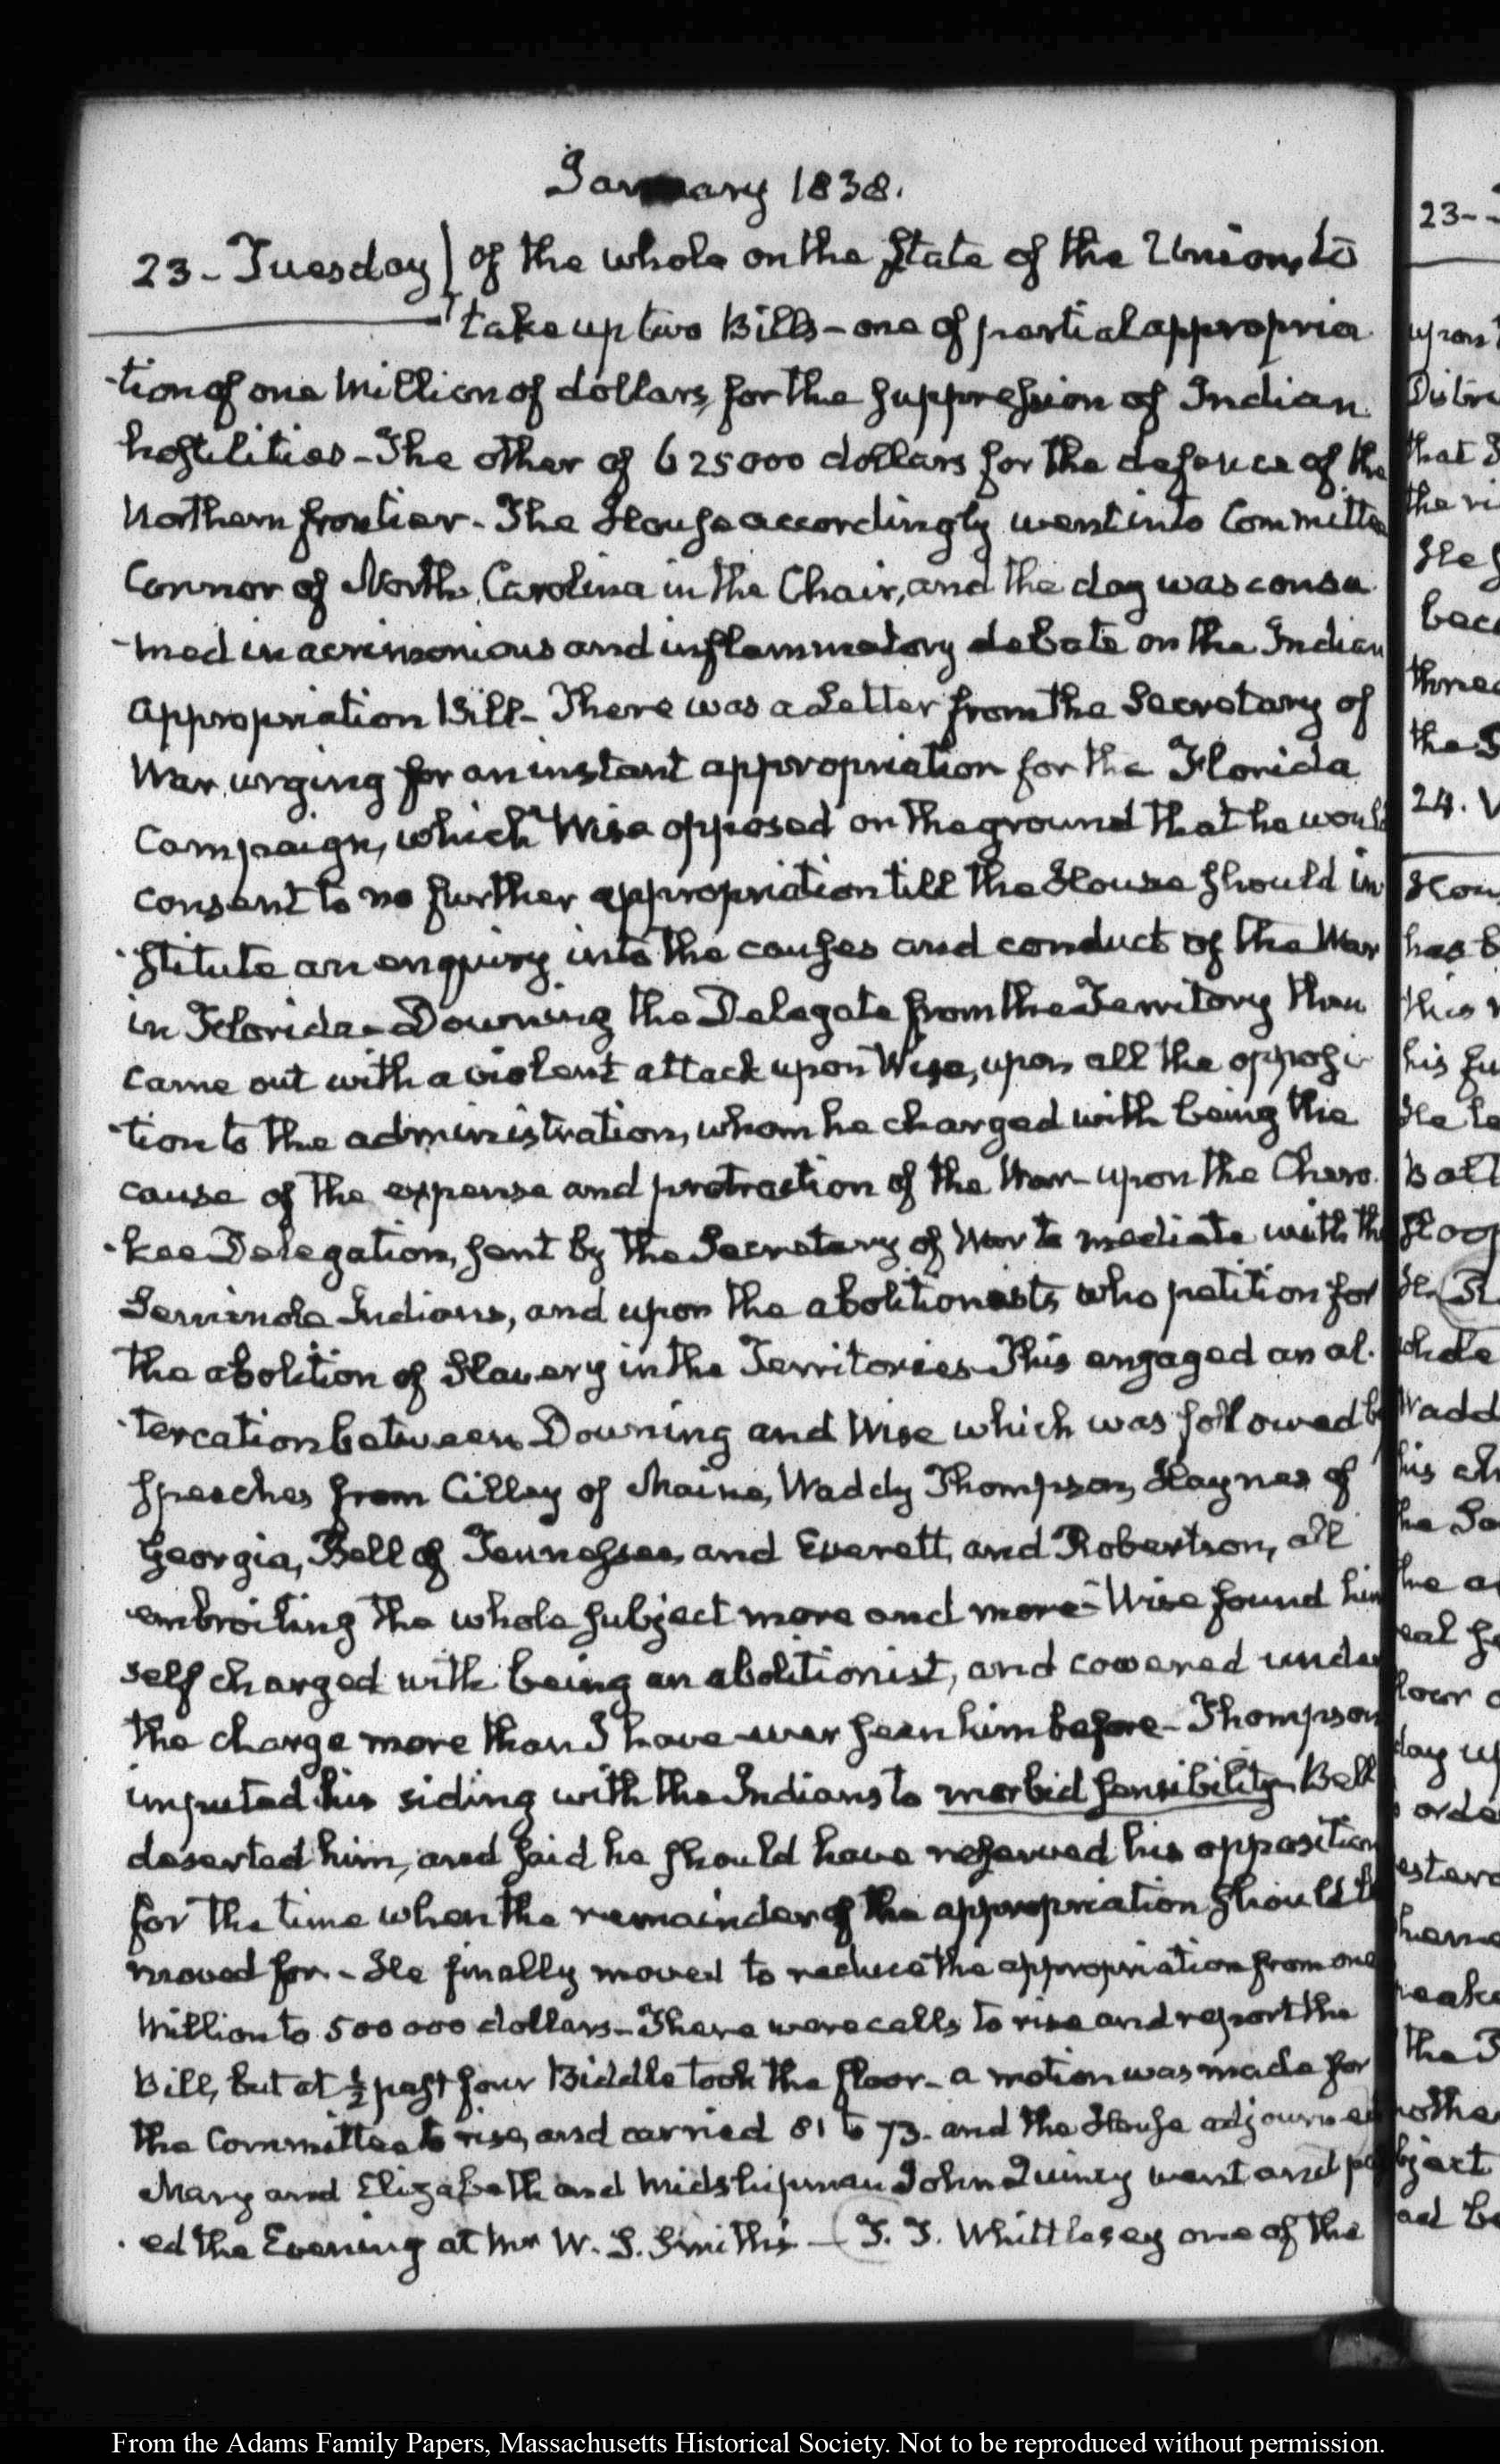 January 1838.
23 - Tuesday of the whole on the State of the Union, to
take up two Bills - one of partial appropria
-tion of one Million of dollars, for the suppression of Indian
hostilities - The other of 625000 dollars for the defence of the
Northern frontier - The House accordingly went into Committee
Connor of North Carolina in the Chair, and the day was consu
-med in acrimonious and inflammatory debate on the Indian
appropriation Bill - There was a Letter from the Secretary of
War, urging for an instant appropriation for the Florida
Campaign, which Wise opposed on the ground that he would
consent to no further appropriation till the House should in
-stitute an enquiry into the causes and conduct of the War
in Florida - Downing the Delegate from the Territory then
came out with a violent attack upon Wise, upon all the opposi
-tion to the administration, whom he charged with being the
cause of the expense and protraction of the War - upon the Chero
-kee Delegation, sent by the Secretary of War to mediate with the
Seminole Indians, and upon the abolitionists who petition for
the abolition of Slavery in the Territories - This engaged an al-
-tercation between Downing and Wise which was followed by
speeches from Cilley of Maine, Waddy Thompson, Haynes of
Georgia, Bell of Tennessee, and Everett, and Robertson, all
embroiling the whole subject more and more - Wise found him
self charged with being an abolitionist, and cowered under
the charge more than I have ever seen him before - Thompson
imputed his siding with the Indians to morbid sensibility - Bell
deserted him, and said he should have reserved his opposition
for the time when the remainder of the appropriation should be
moved for - He finally moved to reduce the appropriation from one
Million to 500 000 dollars - There were calls to rise and report the
Bill, but at ½ past four Biddle took the floor - a motion was made for
the Committee to rise, and carried 81 to 73. and the House adjourned
Mary and Elizabeth and Midshipman John Quincy went and pass
-ed the Evening at Mr W. S. Smith's - T. T. Whittlesey one of the
23 - -
upon
that
the
24.
has
this
his
the
From the Adams Family Papers, Massachusetts Historical Society. Not to be reproduced without permission.